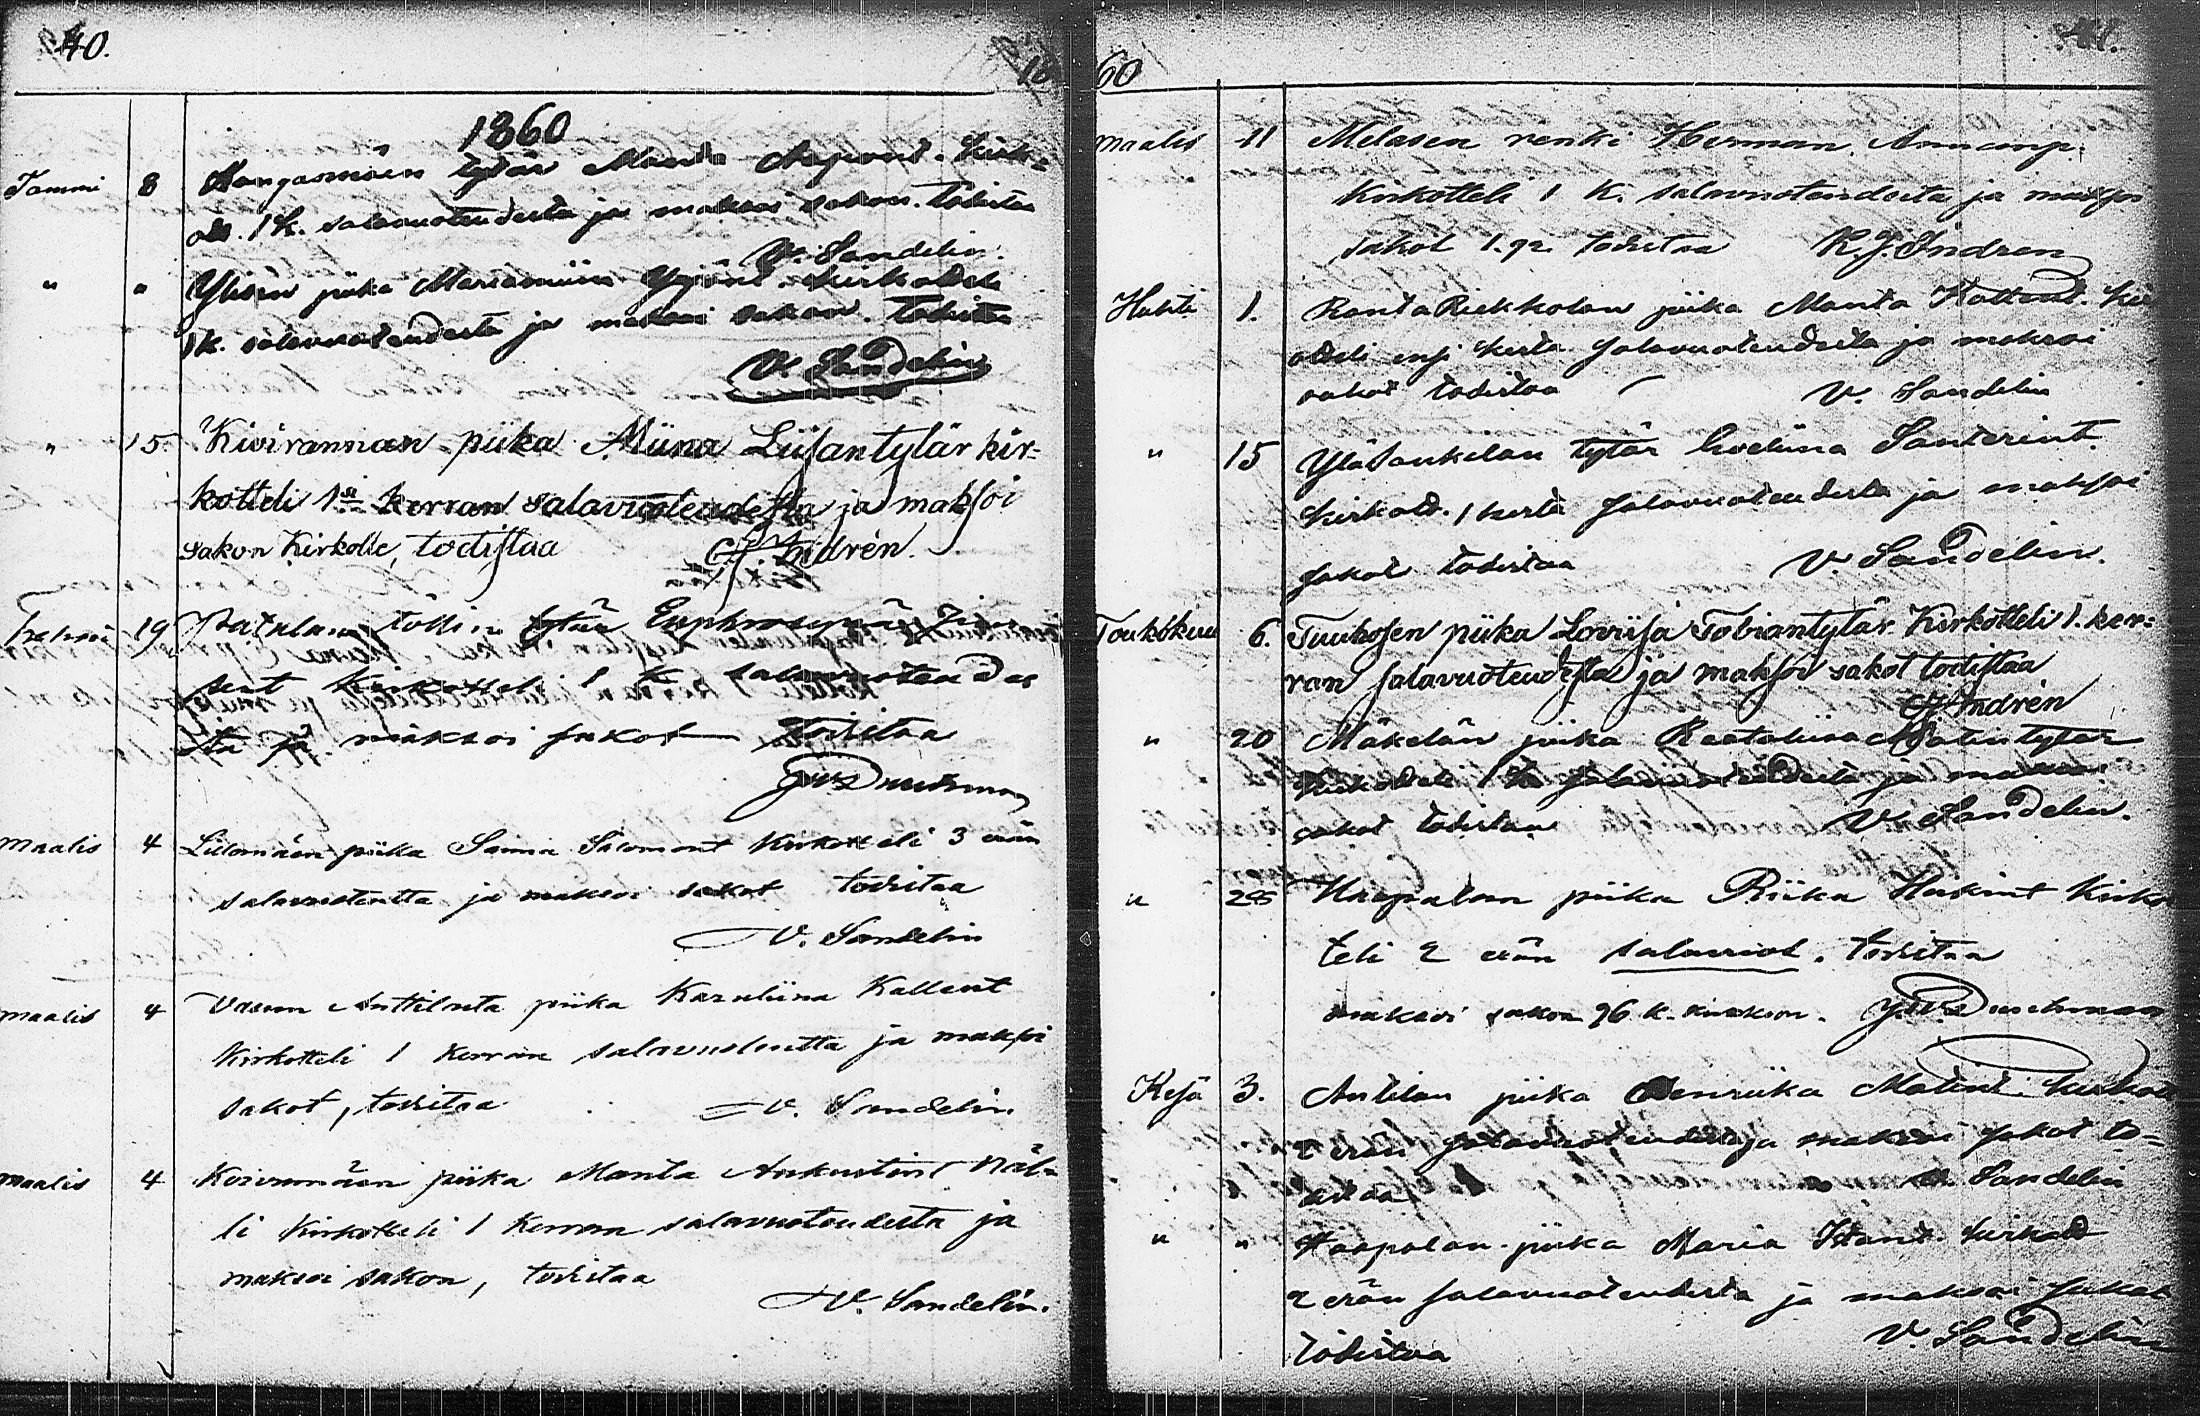 40.
1860
Tammi 8 Kangasmäen tytär Manta Aapont. Kirk=
ott. 1 k. salavuoteudesta ja maksoi sakon. todistaa
V. Sandelin.
" " Ylisen piika Mariamiina Yrjönt. kirkotteli
1 k. salavuoteudesta ja maksoi sakon. todistaa
V. Sandelin
" 15. Kivirannan piika Miina Liisantytär kir=
kotteli 1si kerran salavuoteudesta ja maksoi
sakon Kirkolle, todistaa Indrén.
19 töllin tytär
Kirkotteli 1 k salavuoteudes
ta ja maksoi sakot todistaa
Maalis 4 piika Sanna Salomont Kirkotteli 3 erän
salavuoteutta ja maksoi sakot todistaa
V. Sandelin
Maalis 4 Anttilasta piika Karuliina Kallent
Kirkotteli 1 kerran salavuoteutta ja maksoi
sakot, todistaa V. Sandelin
Maalis 4 Koivumäen piika Manta Aukustint
li Kirkotteli 1 Kerran salavuoteudesta ja
maksoi sakon, todistaa
V. Sandelin.
60
41.
Maalis 11 Melasen renki Herman
Kirkotteli 1 K. salavuoteudesta ja maksoi
sakot todistaa K. J. Indren
Huhti 1. Ranta Riekkolan piika Manta Kallent.
otteli ensi kerta salavuoteudesta ja maksoi
sakot todistaa V. Sandelin
" 15 YläSaukilan tytär Eveliina Santerint.
kirkott. 1 kerta salavuoteudesta ja maksoi
sakot todistaa V. Sandelin.
Toukokuu 6. Tuukosen piika Loviisa Tobiantytär Kirkotteli 1. ker=
ran salavuoteudesta ja maksoi sakot todistaa
Indrén
" 20 Mäkelän piika Reetaliisa Matintytär
Kirkotteli 1 k. salavuoteudesta ja maksoi
sakot todistaa V. Sandelin.
" 28 Haapalan piika Riika Heikint Kirko
teli 2 erän salavuot. todistaa
maksoi sakon 96 k. kirkkon.
Kesä 3. Antilan piika Henriika Matint. kirkott
2 erän salavuoteudesta ja maksoi sakot to=
distaa V. Sandelin
" " Haapalan piika Maria kirkott
2 erän salavuoteudesta ja maksoi sakot
todistaa V. Sandelin